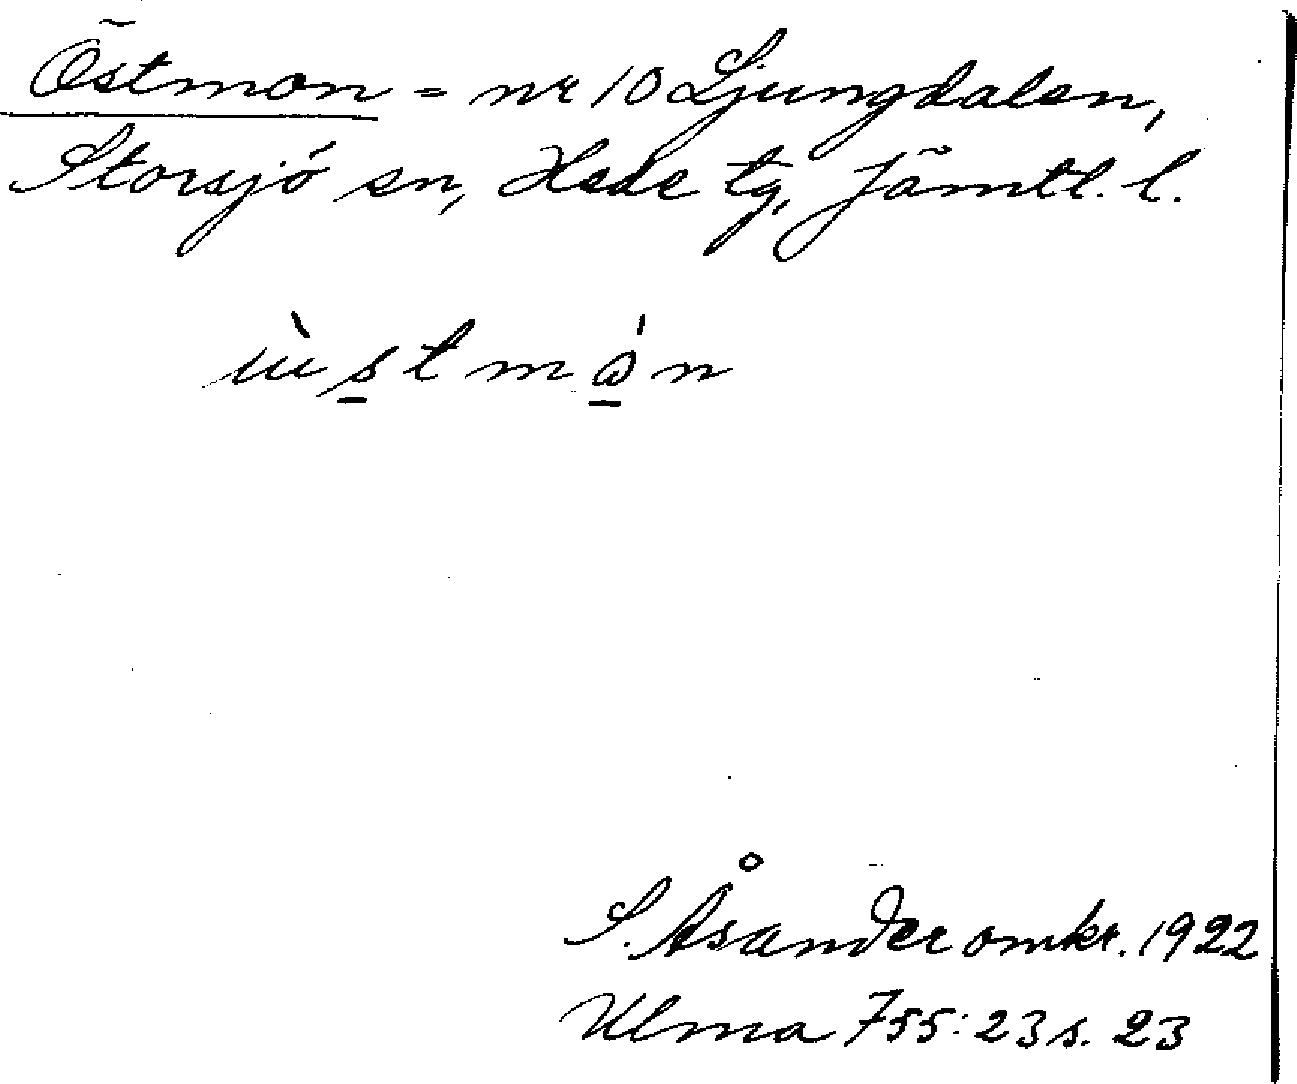 Östmon = nr 10 Ljungdalen,
Storsjö sn, Hede tg, Jämtl. l.
S. Åsander omkr. 1922
Ulma 755:23 s. 23